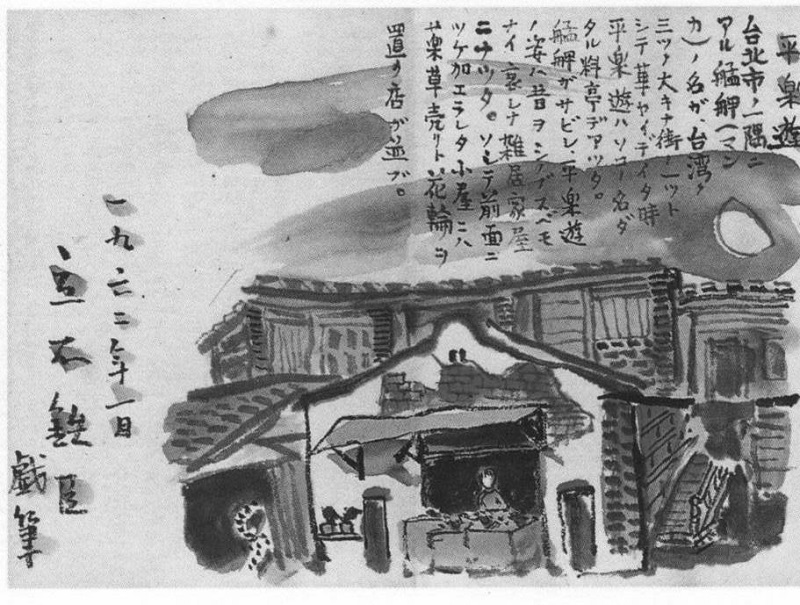 平樂遊
台北市ノ一隅ニ
アル艋舺(マン
カ)ノ名ガ、台湾ノ
三ツノ大キナ街ノ一ツト
シテ華ヤイデイタ時
平樂遊ハソコノ名ダ
タル料亭デアツタ。
艋舺ガサビレ、平樂遊
ノ姿ハ昔ヲシノブスベモ
ナイ哀レナ雑居家屋
ニナツタ。ソシテ前面ニ
ツケ加エラレタ小屋ニハ
薬草売リト花輪ヲ
置ク店ガ並ブ。
一九六二年一月
立石鉄臣
戯筆